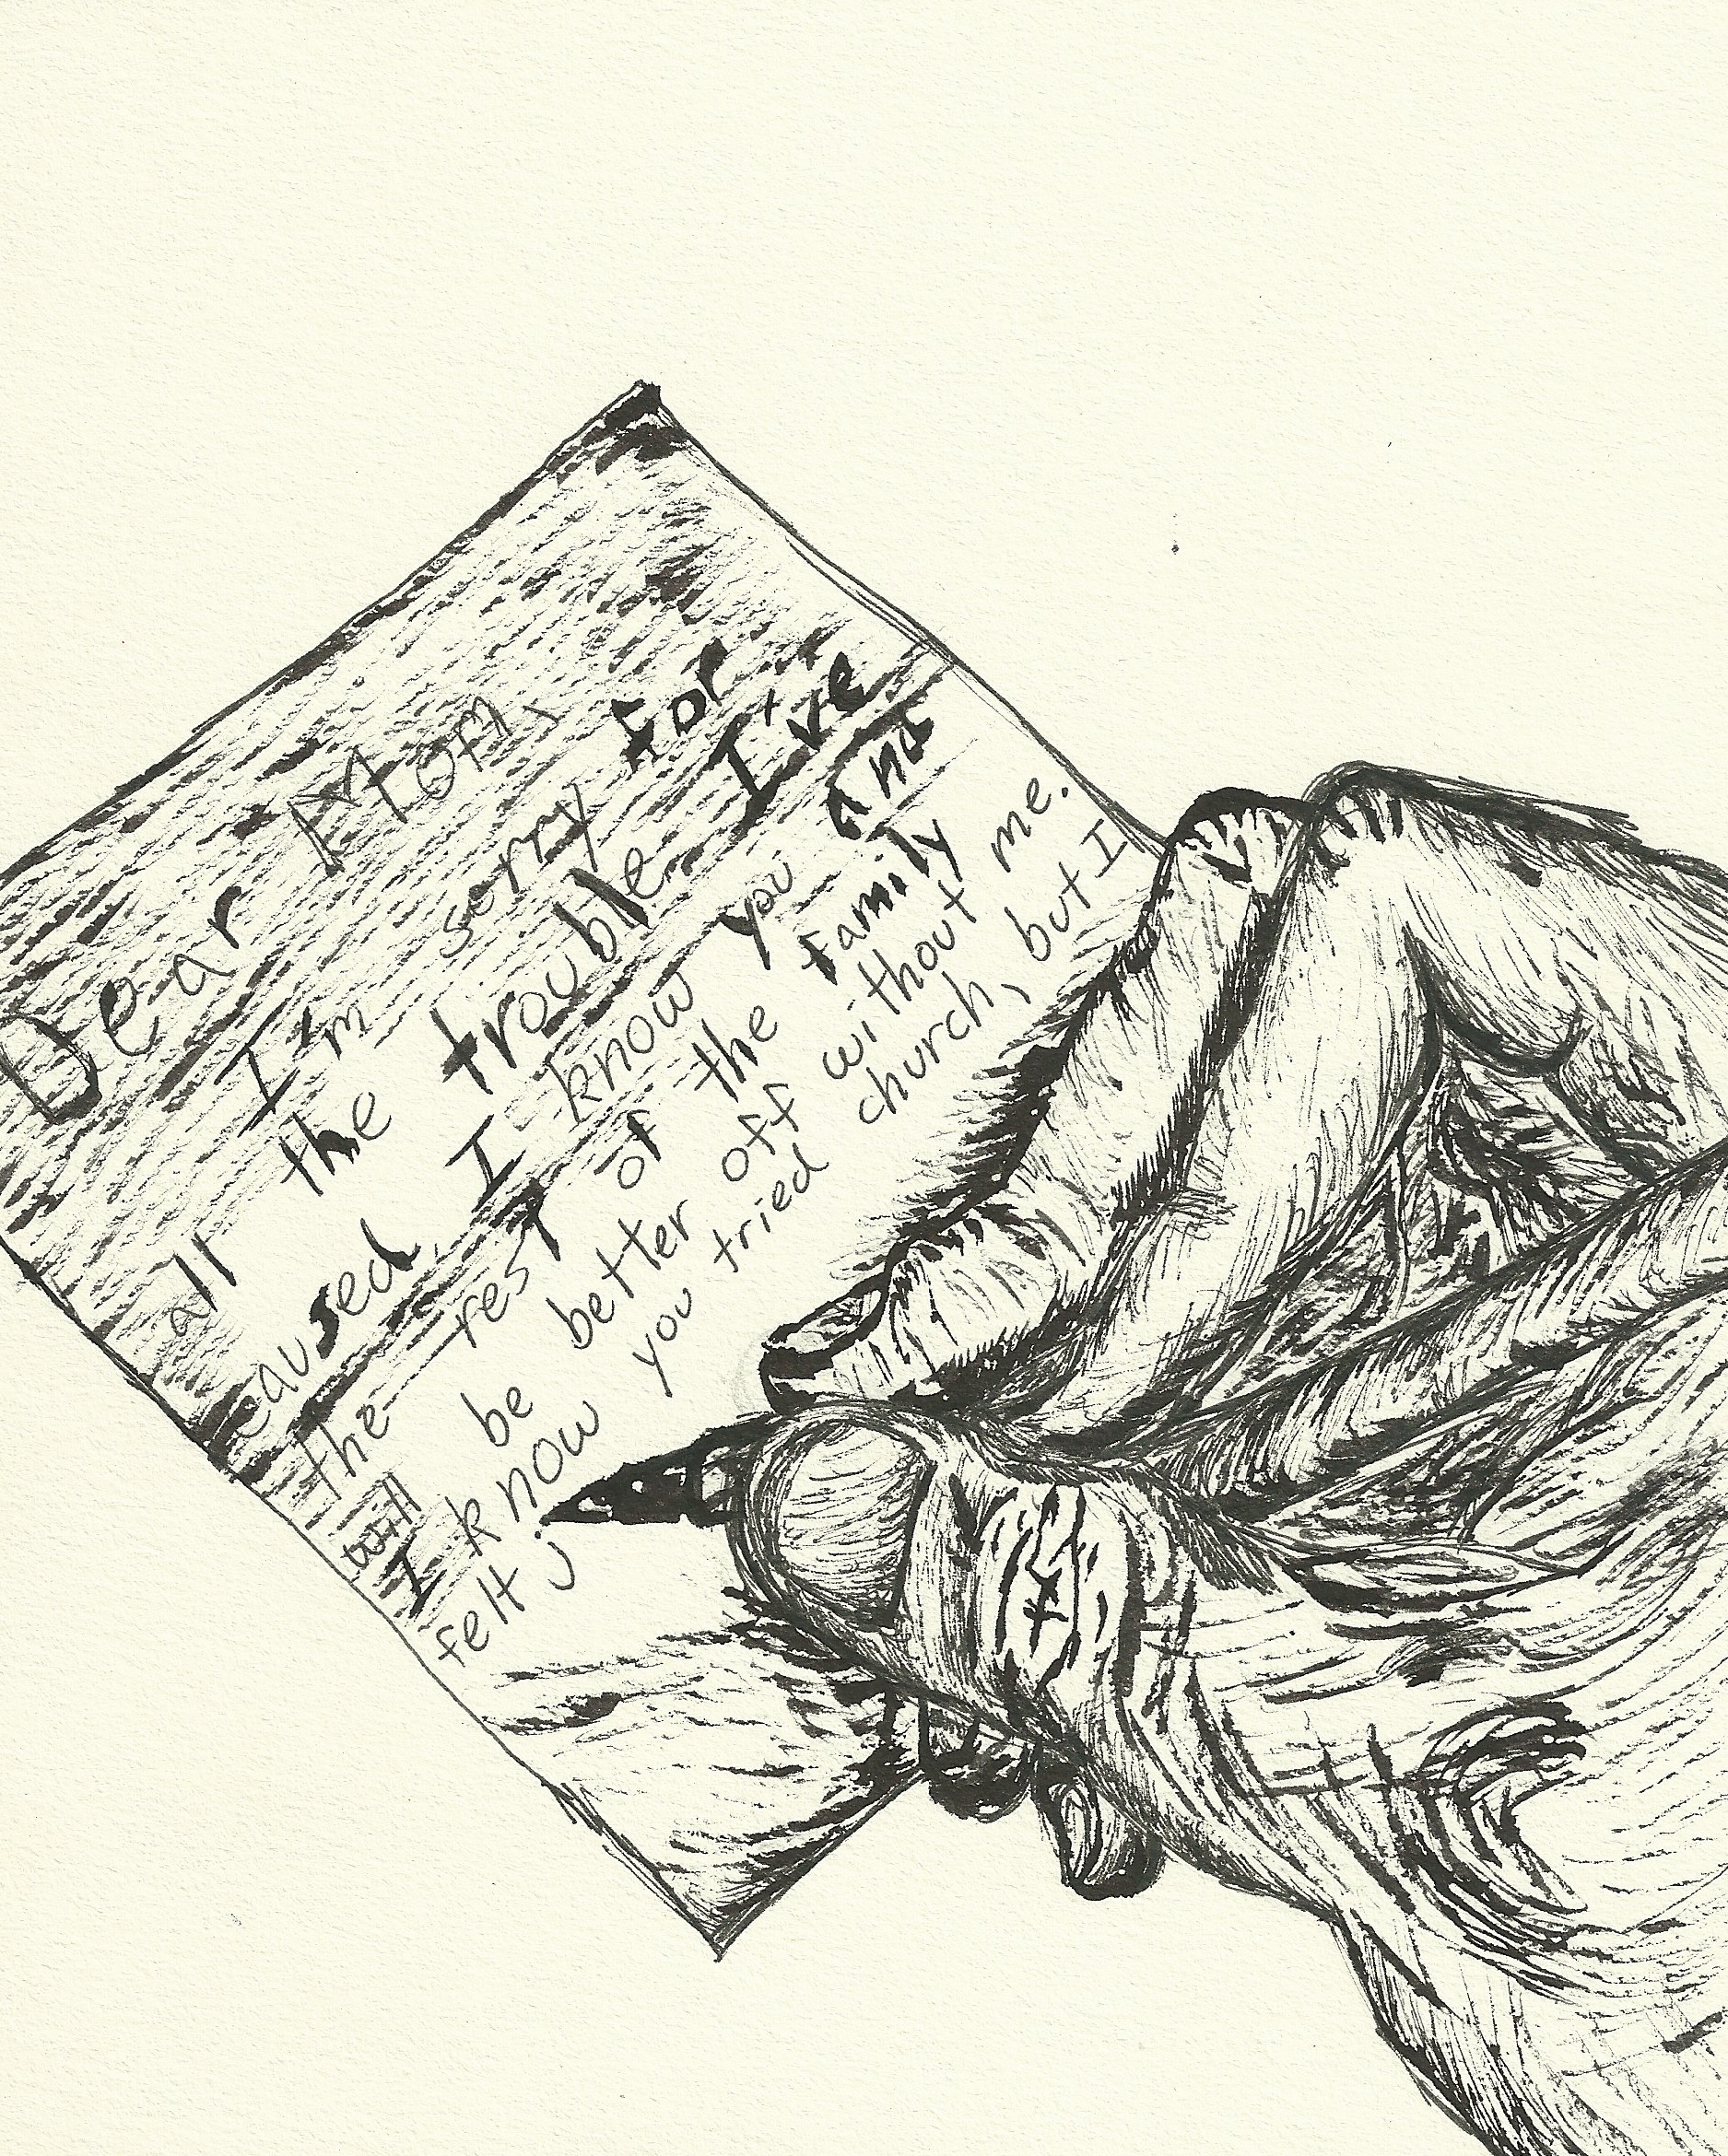 Dear Mom,
I'm sorry for
all the trouble I've
caused. I know you and
the rest of the family
will be better off without me.
I know you tried church, but I
felt j